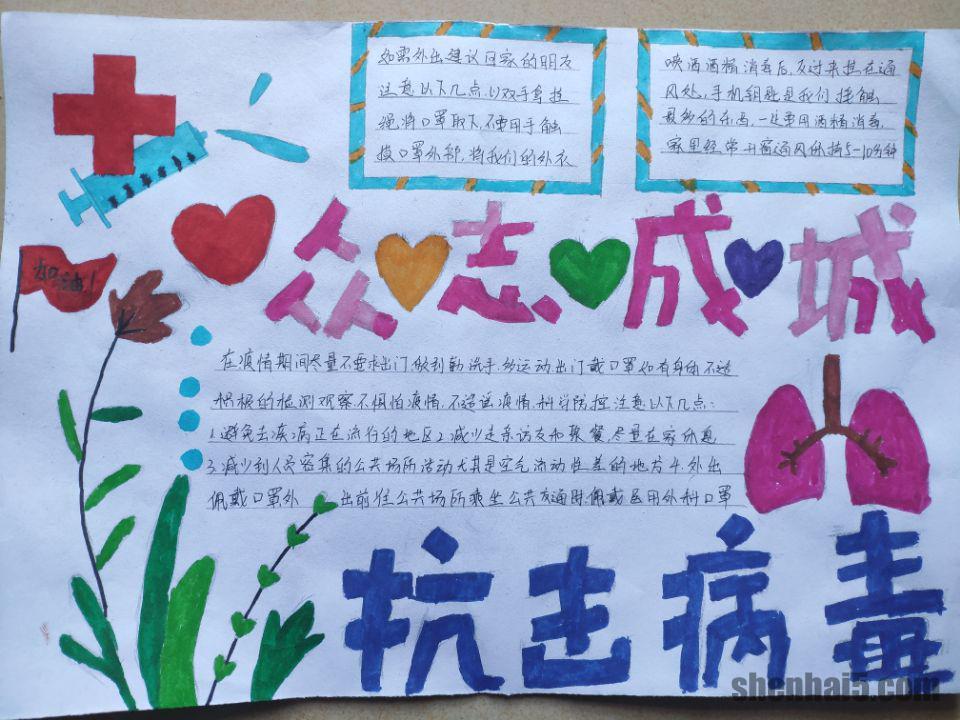 如需外出建议回家的朋友
注意以下几点.以双手拿挂
绳将口罩取下,不要用手触
摸口罩外部,将我们的外衣
喷洒酒精消毒后,反过来挂在通
风处,手机钥匙是我们接触
最多的东西,一定要用酒精消毒,
家里经常开窗通风休持5-10分钟
加油!
众志成城
在疫情期间尽量不要求出门,做到勤洗手,多运动出门戴口罩如有身体不适
积极的检测观察不惧怕疫情,不造谣疫情,科学防控注意以下几点:
1.避免去疾病正在流行的地区2.减少走亲访友和聚餐,尽量在家休息
3.减少到人员密集的公共场所活动尤其是空气流动性差的地方4.外出
佩戴口罩外出前往公共场所乘坐公共交通时.佩戴医用外科口罩
抗击病毒
shenhai5.com